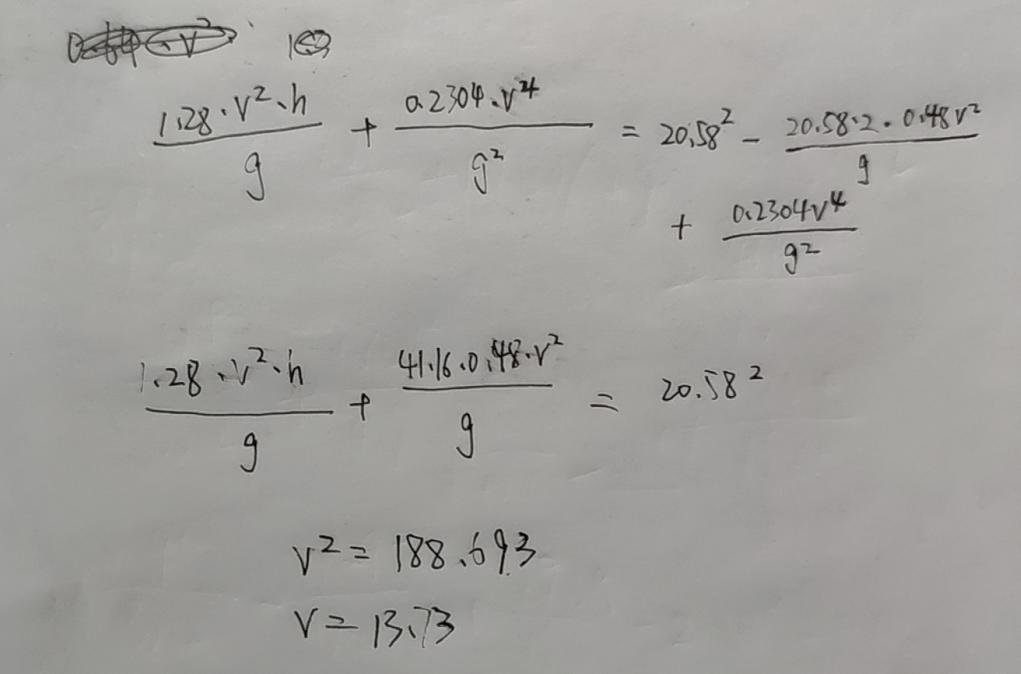 1.28·v²·h/g + 0.2304·v⁴/g² = 20.58² - 20.58·2·0.48v²/g
+ 0.2304v⁴/g²
1.28·v²·h/g + 41.16·0.48·v²/g = 20.58²
v² = 188.693
v = 13.73